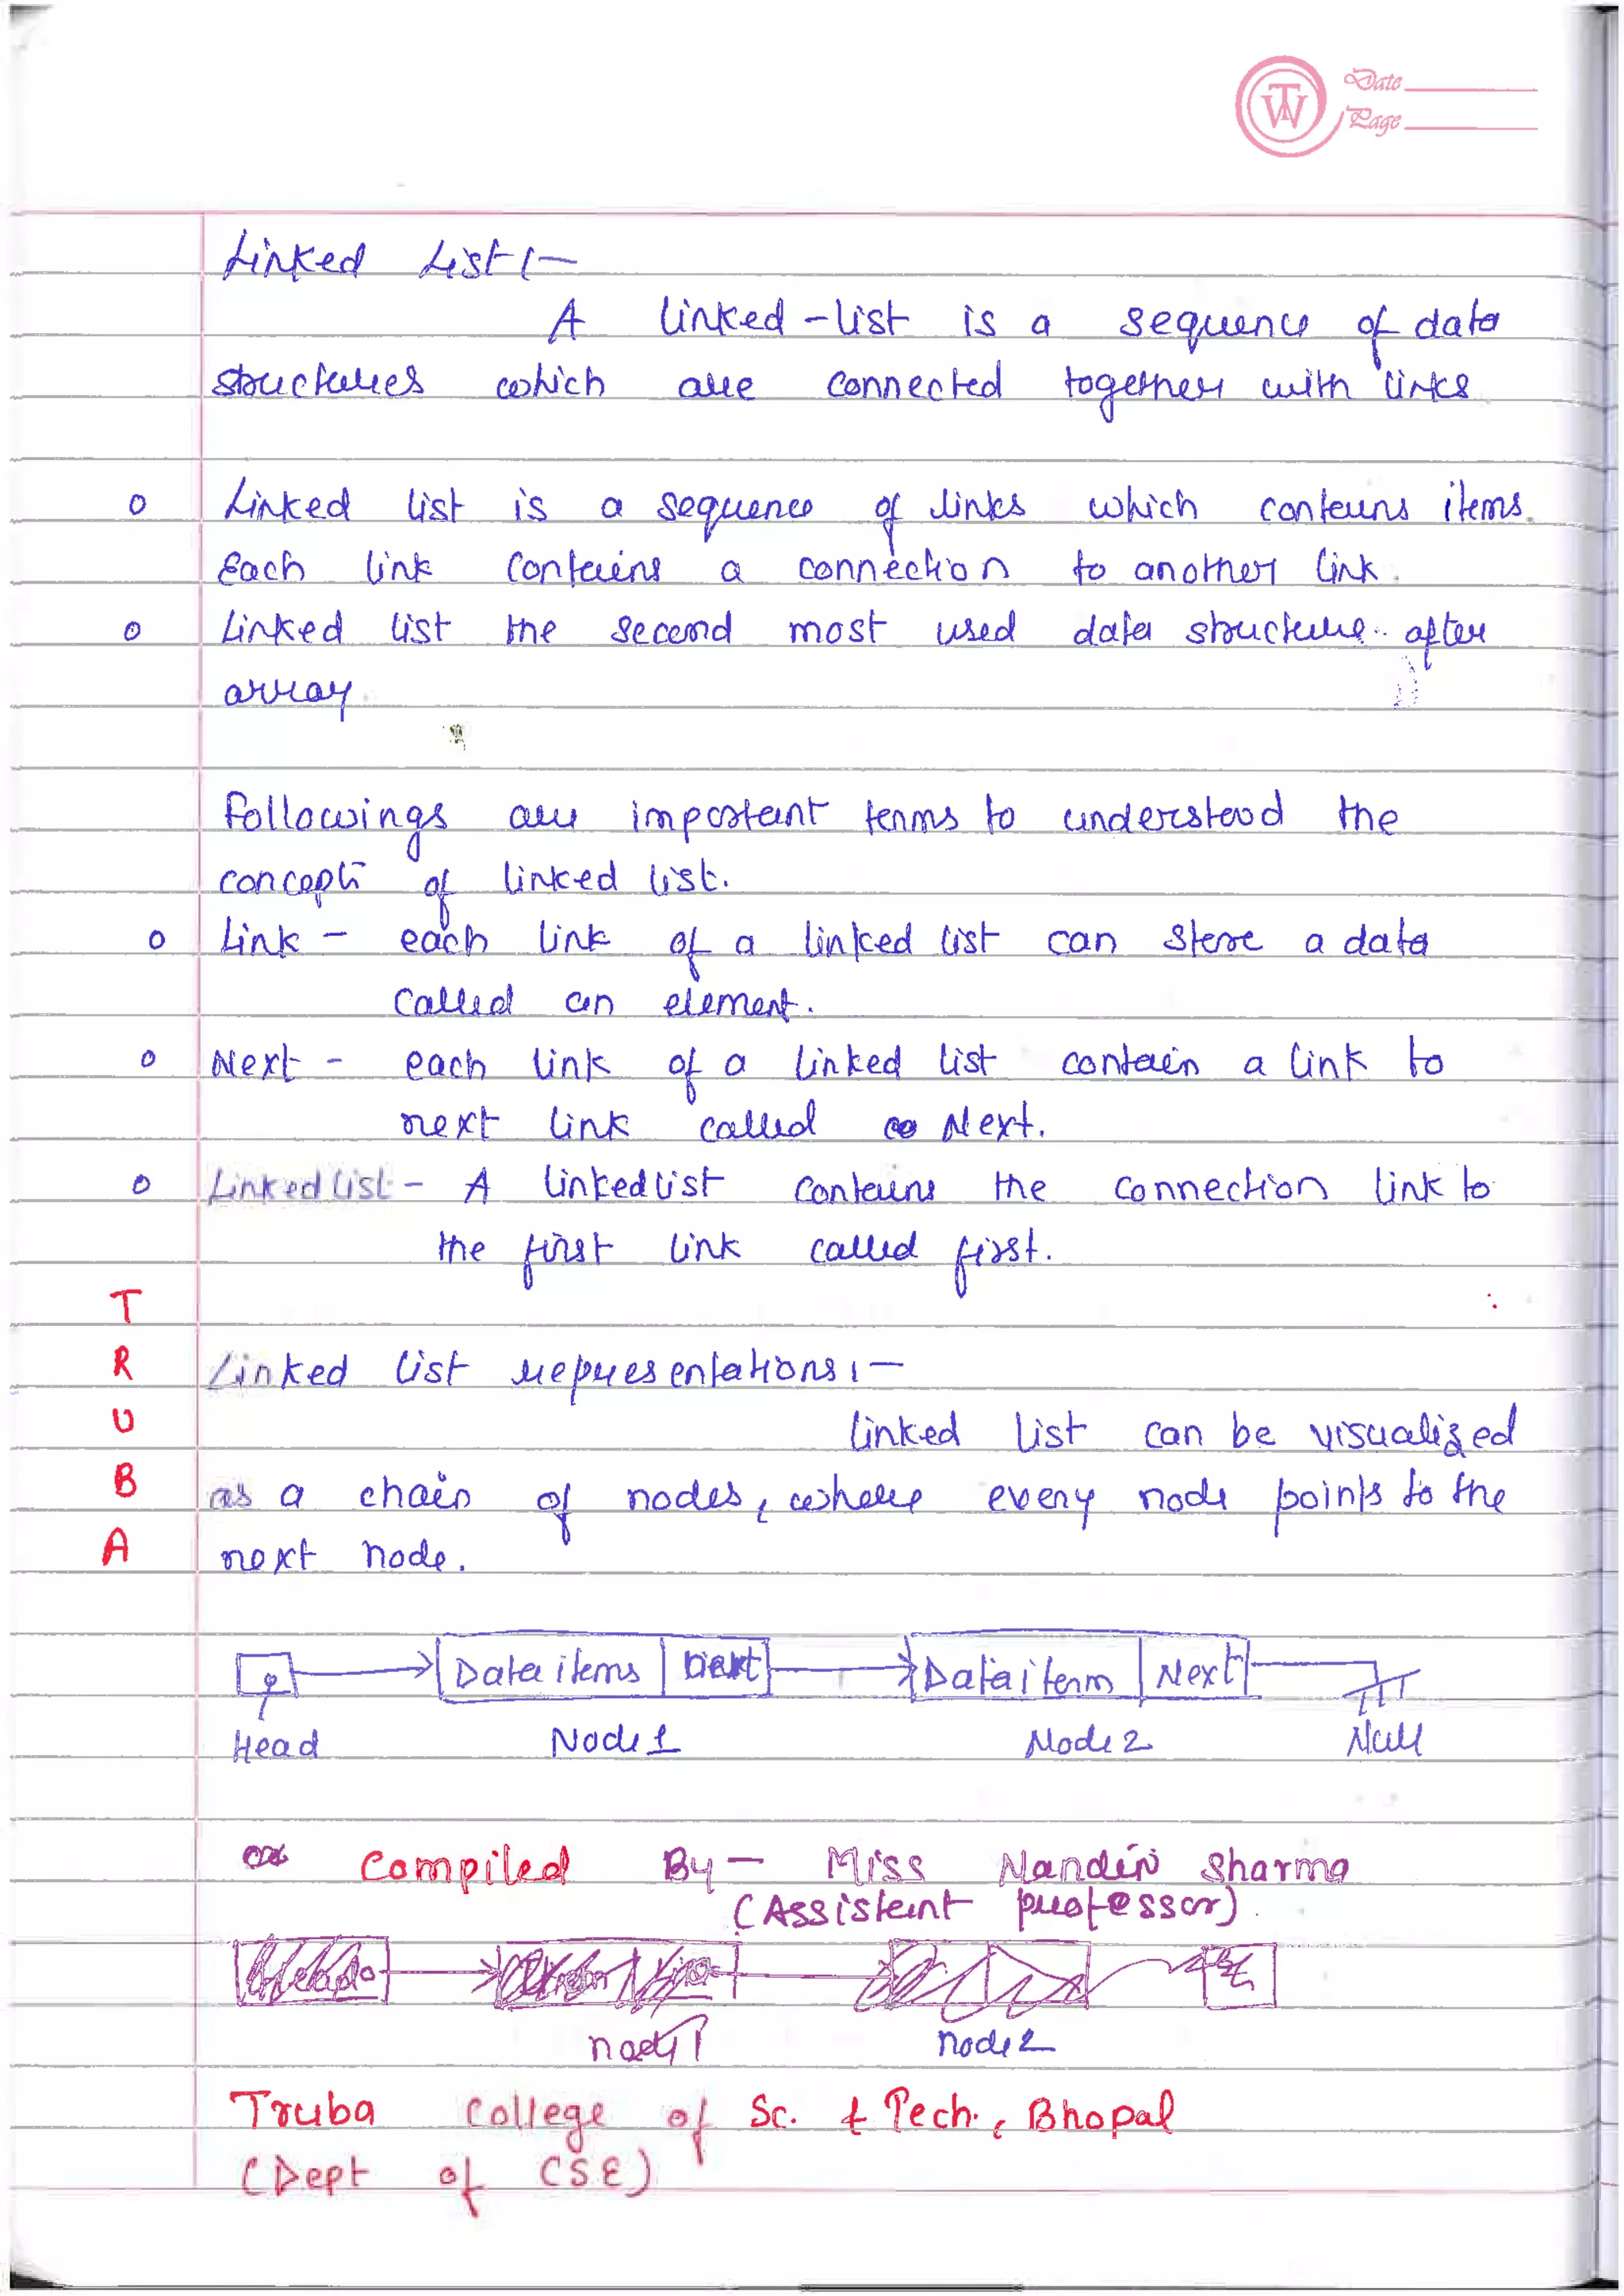 Date
Page
TW
Linked List :-
A linked-list is a sequence of data
structures which are connected together with links
o Linked list is a sequence of links which contains items.
Each link contains a connection to another link.
o Linked list the second most used data structure.. after
array.
Followings are important terms to understood the
concept of linked list.
o Link - each link of a linked list can store a data
called an element.
o Next - each link of a linked list contain a link to
next link called Next.
o Linked list - A linkedlist contains the connection link to
the first link called first.
T
R
U
B
A
Linked list representations :-
linked list can be visualized
as a chain of nodes, where every node points to the
next node.
Data items Next Data iterm Next
Head Node 1 Node 2 Null
Compiled By - Miss Nandini Sharma
(Assistant professor)
node 1 node 2
Truba College of Sc. & Tech., Bhopal
(Dept of CSE)